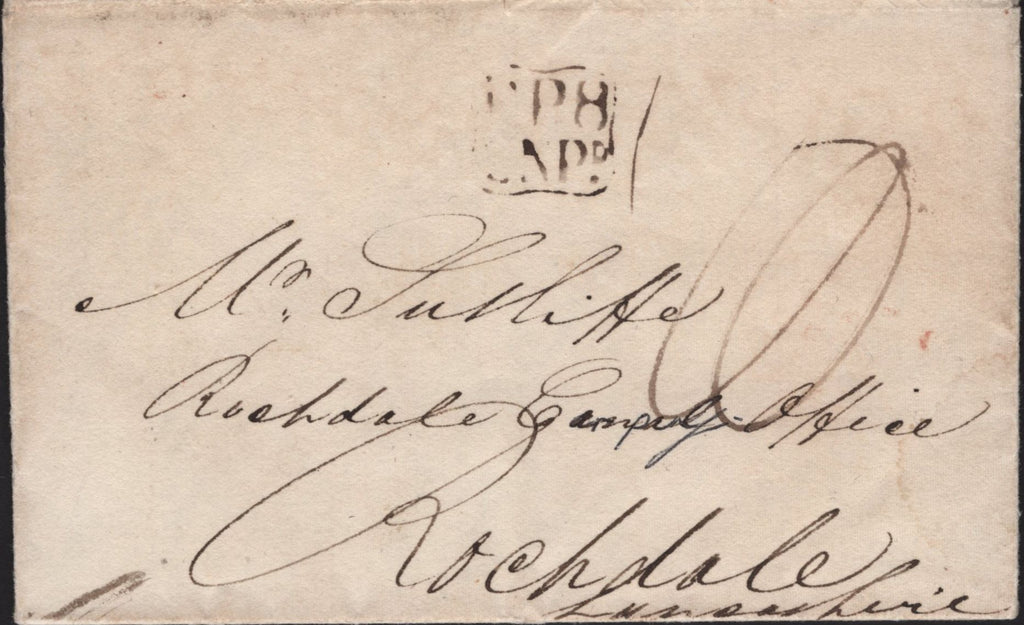 P8
AP
Mr. Sutcliffe
Rochdale Canal Office
Rochdale
Lancashire